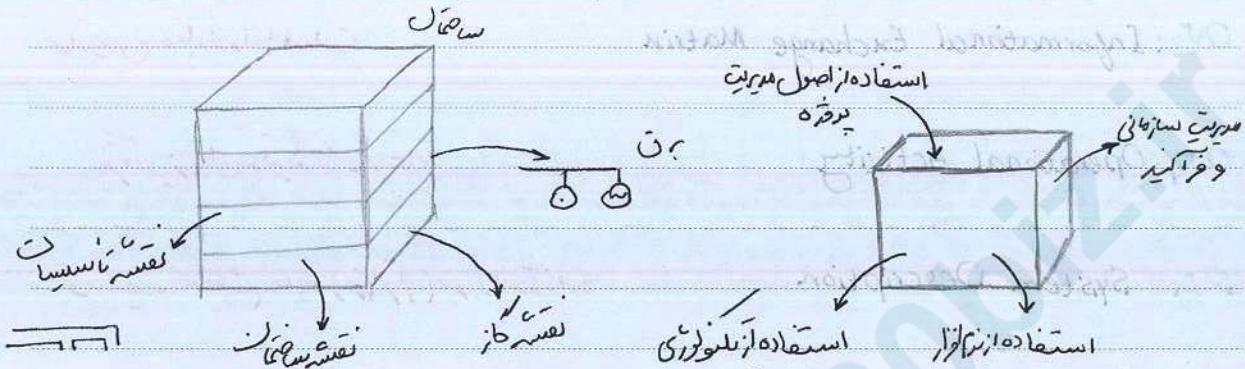 ساختمان
برق
نقشه تاسیسات
نقشه ساختمان
نقشه گاز
استفاده از اصول مدیریت
پروژه
مدیریت سازمانی
و فرآیند
استفاده از تکنولوژی
استفاده از نرم افزار